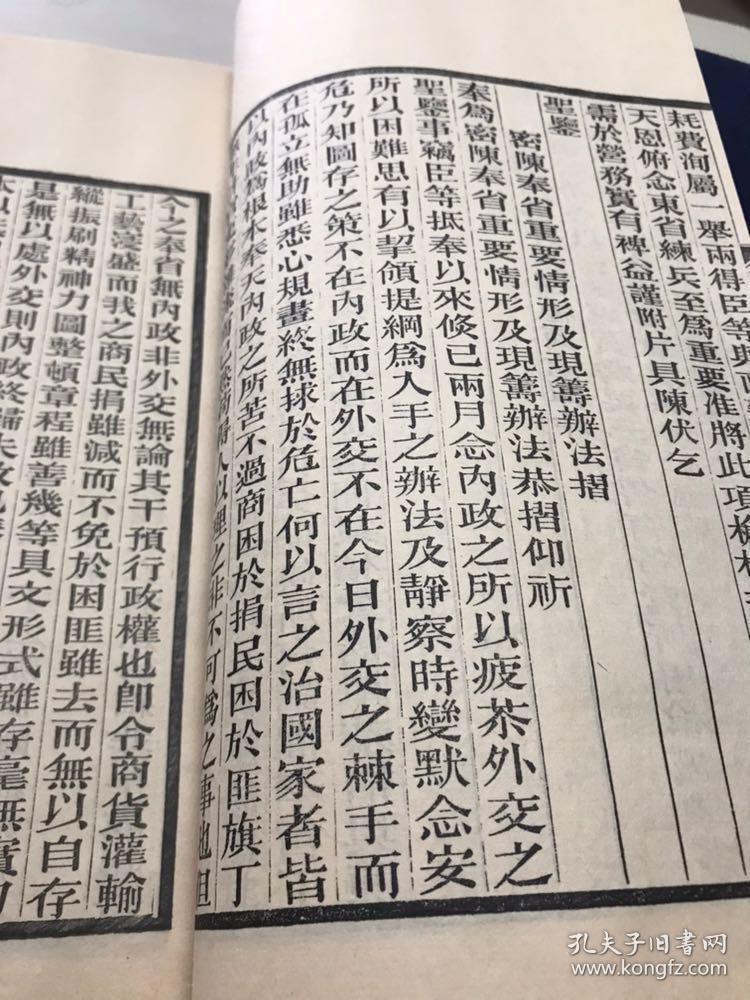 耗費洵屬一舉兩得臣等與
天恩俯念東省練兵至為重要准將此項
需於營務實有裨益謹附片具陳伏乞
聖鑒
密陳奉省重要情形及現籌辦法摺
奏為密陳奉省重要情形及現籌辦法恭摺仰祈
聖鑒事竊臣等抵奉以來倏已兩月念內政之所以疲苶外交之
所以困難思有以挈領提綱為入手之辦法及靜察時變默念安
危乃知圖存之策不在內政而在外交不在今日外交之棘手而
在孤立無助雖悉心規畫終無捄於危亡何以言之治國家者皆
以內政為根本奉天內政之所苦不過商困於捐民困於匪旗丁
人以理之非不可為之事也但
今之奉省無內政非外交無論其干預行政權也卽令商貨灌輸
工藝淩盛而我之商民捐雖減而不免於困匪雖去而無以自存
縱振刷精神力圖整頓章程雖善幾等具文形式雖存毫無實
是無以處外交則內政終歸失敗
孔夫子旧书网
www.kongfz.com